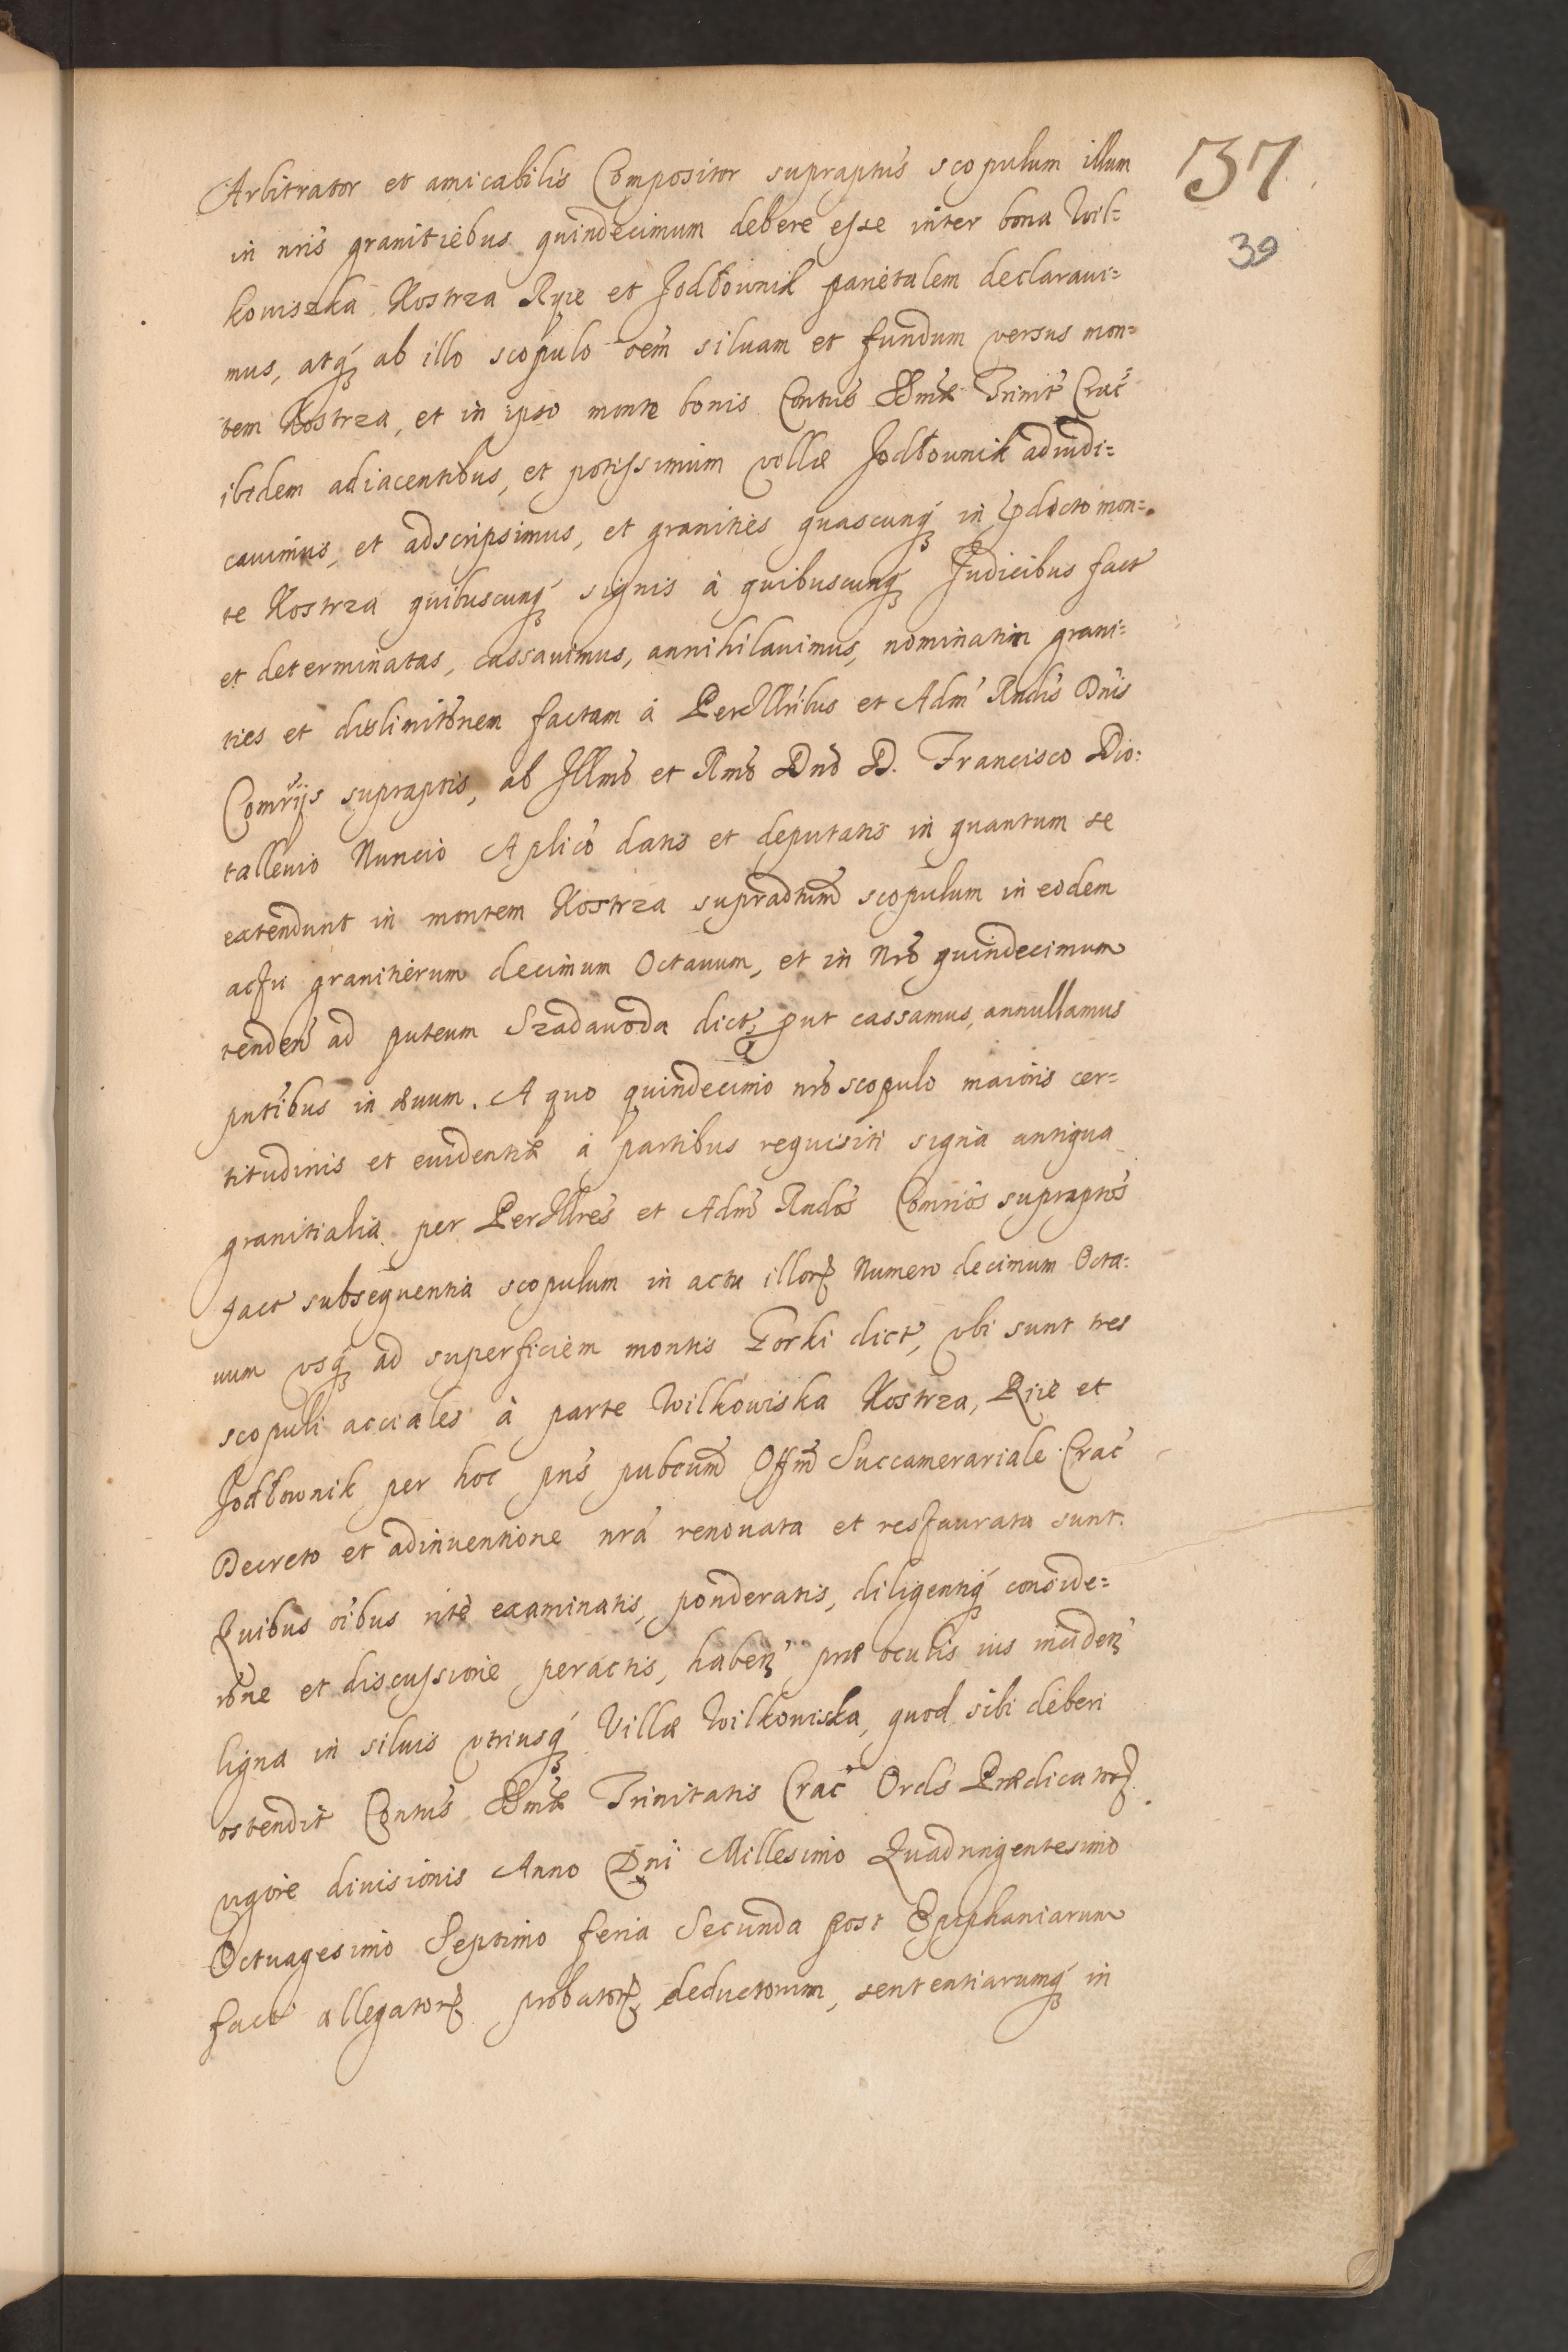 37
39
Arbitrator et amicabilis Compositor supraptus scopulum illum
in nris granitiebus quindecimum debere esse inter bona Wil=
kowiszka Kostrza Ryie et Jodłownik parietalem declaraui=
mus, atq́ ab illo scopulo oem siluam et fundum versus mon=
tem Kostrza, et in ipso monte bonis Contus SSmæ Trinit Crac
ibidem adiacentibus, et potissimum villæ Jodłownik adiudi=
cauimus, et adscripsimus, et granities quascunq́ in pdicto mon=
te Kostrza quibuscunq́ signis à quibuscunq́ Judicibus fact
et determinatas, cassauimus, annihilauimus, nominatim grani=
ties et dislimitonem factam à PerIllribus et Adm Rndis Dnis
Comrijs supraptis, ab Illmo et Rmo Dno D. Francisco Dio=
tallenio Nuncio Aplico datis et deputatis in quantum se
extendunt in montem Kostrza supradtum scopulum in eodem
actu granitierum decimum Octauum, et in Nro quindecimum
tenden ad puteum Szadawoda dict, put cassamus, annullamus
pntibus in æuum. A quo quindecimo nro scopulo maioris cer=
titudinis et euidentiæ à partibus requisiti signa antiqua
granitialia per PerIllres et Adm Rndos Comrios supraptos
fact subsequentia scopulum in actu illor Numero decimum Octa=
uum vsq́ ad superficiem montis Forki dict, vbi sunt tres
scopuli acciales à parte Wilkowiska Kostrza, Riie et
Jodłownik per hoc pns pubcum Offm Succamerariale Crac
Decreto et adinuentione nrá renouata et restaurata sunt.
Quibus oibus ritè examinatis, ponderatis, diligentiq́ conside=
rone et discussione peractis, haben præ oculis ius
ligna in siluis vtriusq́ Villæ Wilkowiska, quod sibi deberi
ostendit Contus SSmæ Trinitatis Crac Ords Prædicator
vigore diuisionis Anno Dni Millesimo Quadringentesimo
Octuagesimo Septimo feria Secunda post Epiphaniarum
fact allegator probator deductorum, sententiarumq́ in